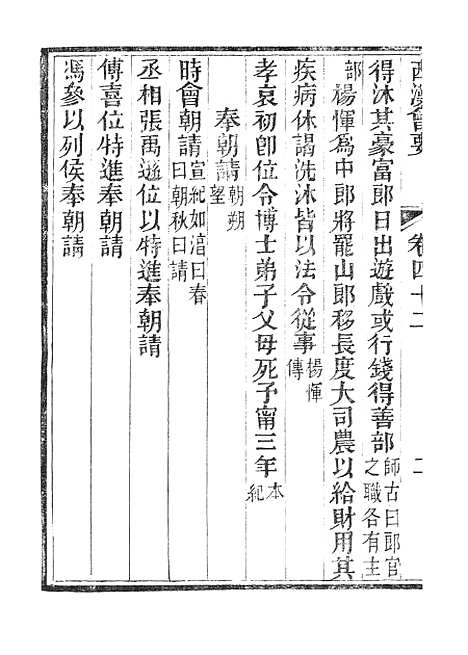 西漢會要 卷四十二 二
得沐其豪富郎日出遊戲或行錢得善部師古曰郎官之職各有主
部楊惲為中郎將罷山郎移長度大司農以給財用其
疾病休謁洗沐皆以法令從事楊惲傳
孝哀初卽位令博士弟子父母死予甯三年本紀
奉朝請朝朔望
時會朝請宣紀如湻曰春曰朝秋曰請
丞相張禹遜位以特進奉朝請
傅喜位特進奉朝請
馮參以列侯奉朝請